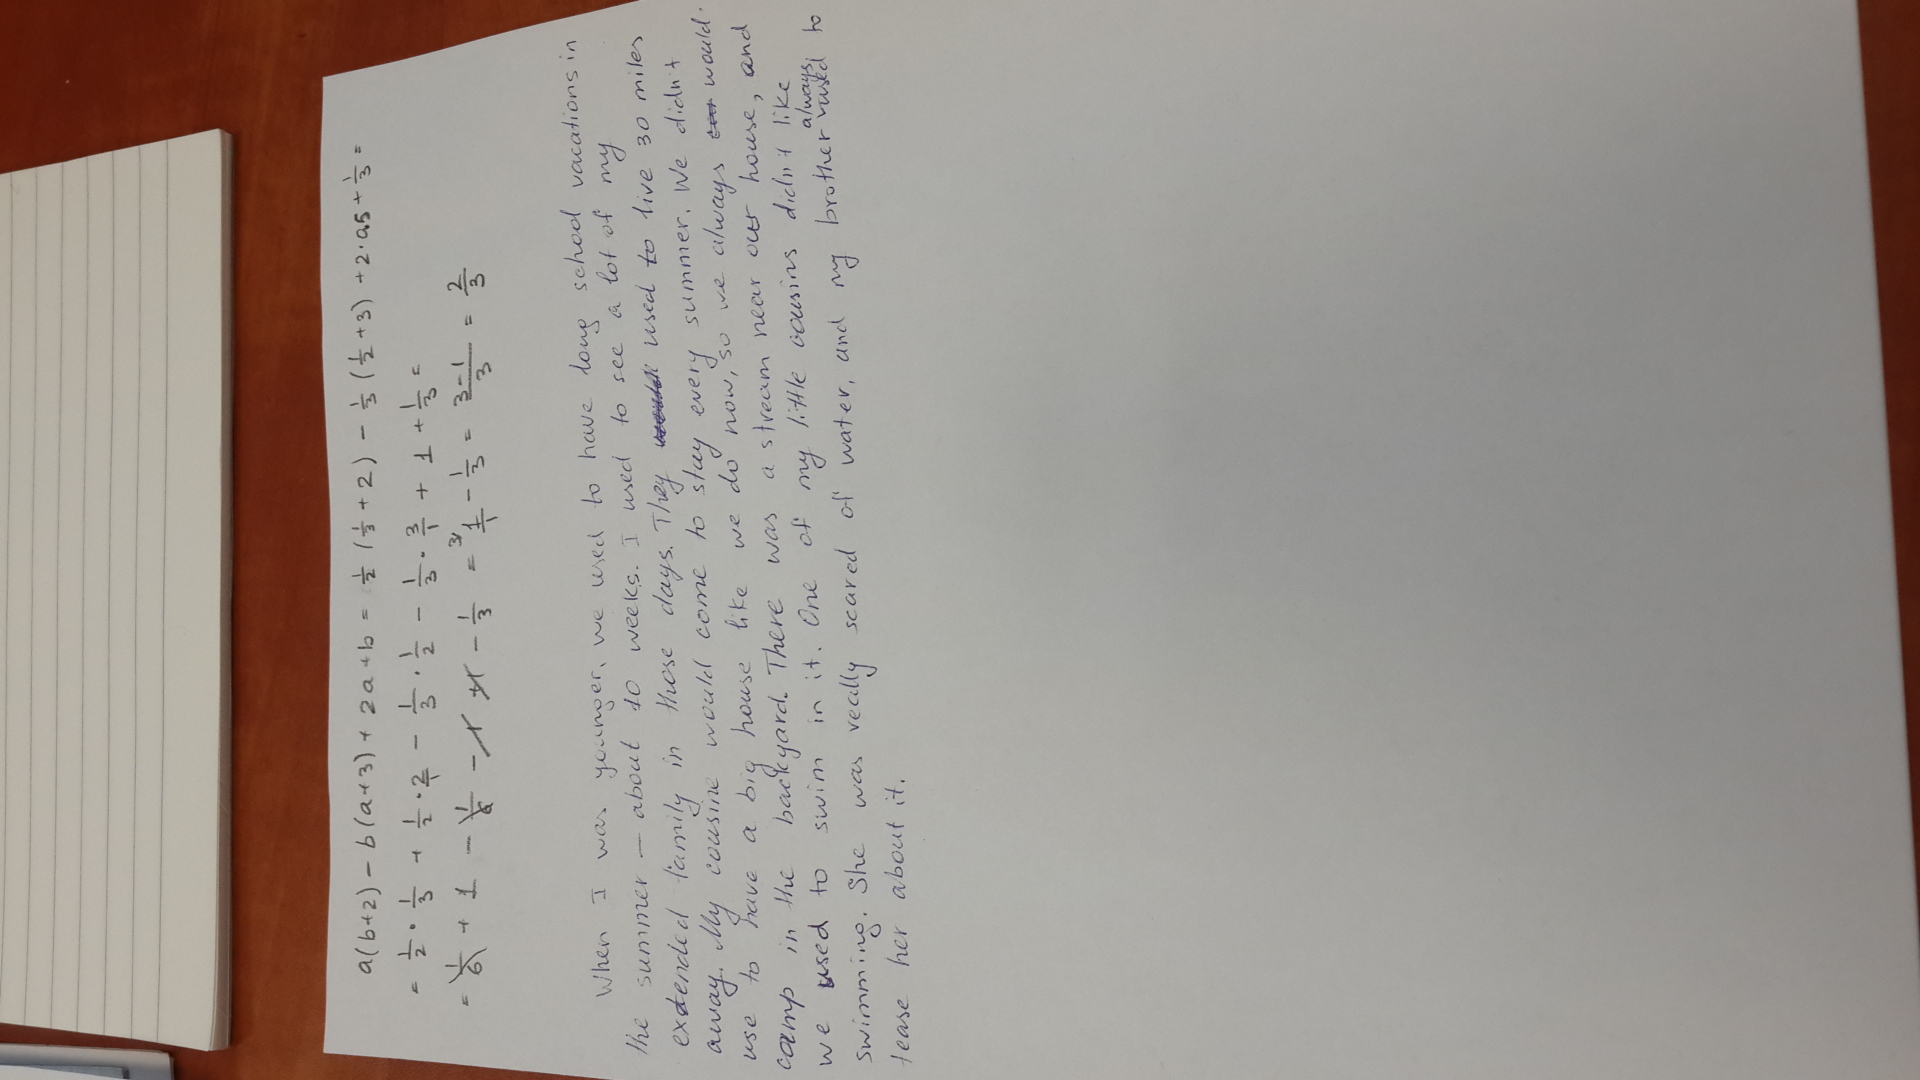 a(b+2) - b(a+3) + 2a + b = 1/2 (1/3 + 2) - 1/3 (1/2 + 3) + 2·0,5 + 1/3 =
= 1/2 · 1/3 + 1/2 · 2/1 - 1/3 · 1/2 - 1/3 · 3/1 + 1 + 1/3 =
= 1/6 + 1 - 1/6 - 1 + 1 - 1/3 = 3/ 1/1 - 1/3 = 3-1/3 = 2/3
When I was younger, we used to have long school vacations in
the summer — about 10 weeks. I used to see a lot of my
extended family in those days. They would used to live 30 miles
away. My cousine would come to stay every summer. We didn't
use to have a big house like we do now, so we always would.
camp in the backyard. There was a stream near our house, and
we used to swim in it. One of my little cousins didn't like
swimming. She was really scared of water, and my brother always used to
tease her about it.